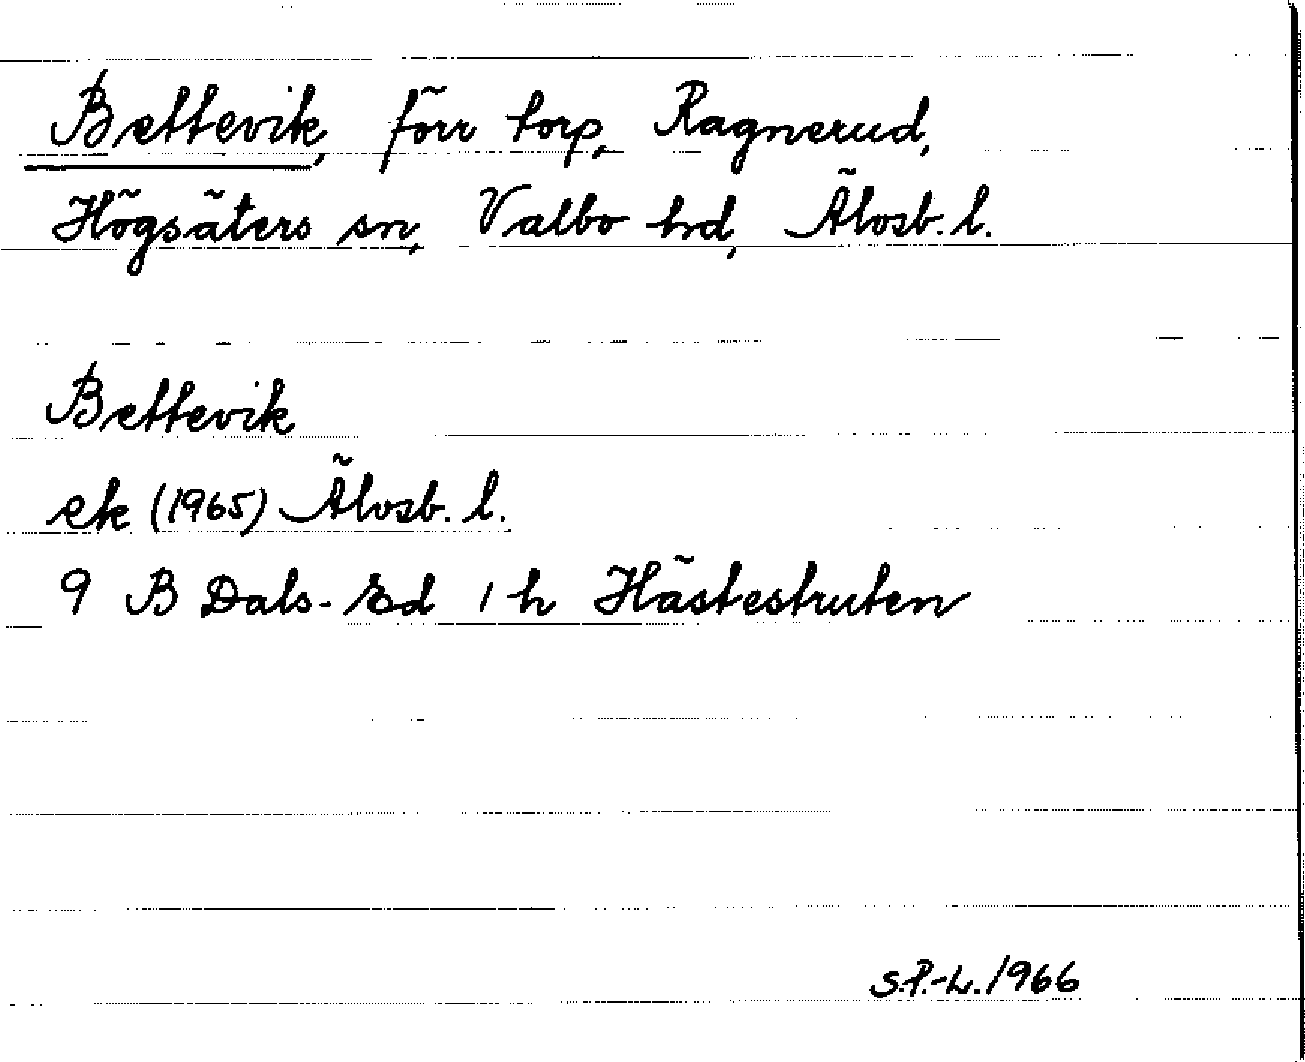 Bettevik, förr torp, Ragnerud,
Högsäters sn, Valbo hd, Älvsb. l.
Bettevik
ek (1965) Älvsb. l.
9 B Dals-Ed 1 h Hästestruten
S.P.-L. 1966